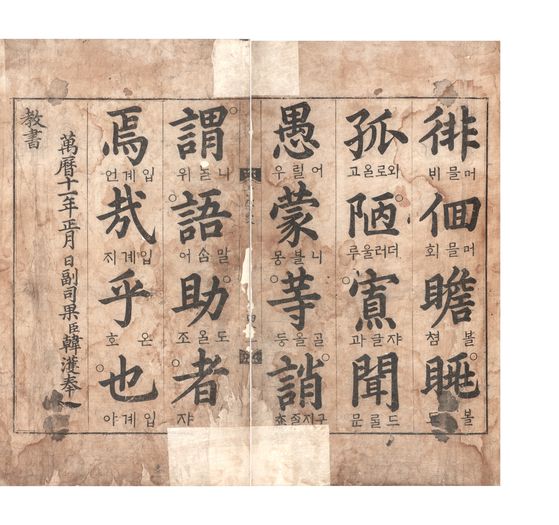 徘 머믈비
佪 머믈회
瞻 볼쳠
眺 볼
孤 와로올고
陋 더러울루
寡 쟈글과
聞 드룰문
愚 어릴우
蒙 니블몽
等 골올등
誚 구지줄쵸
謂 위
語 말ᄉᆞᆷ어
助 도올조
者 쟈
焉 입계언
哉 입계ᄌᆡ
乎 온호
也 입계야
萬曆十一年正月 日副司果臣韓濩奉
教書